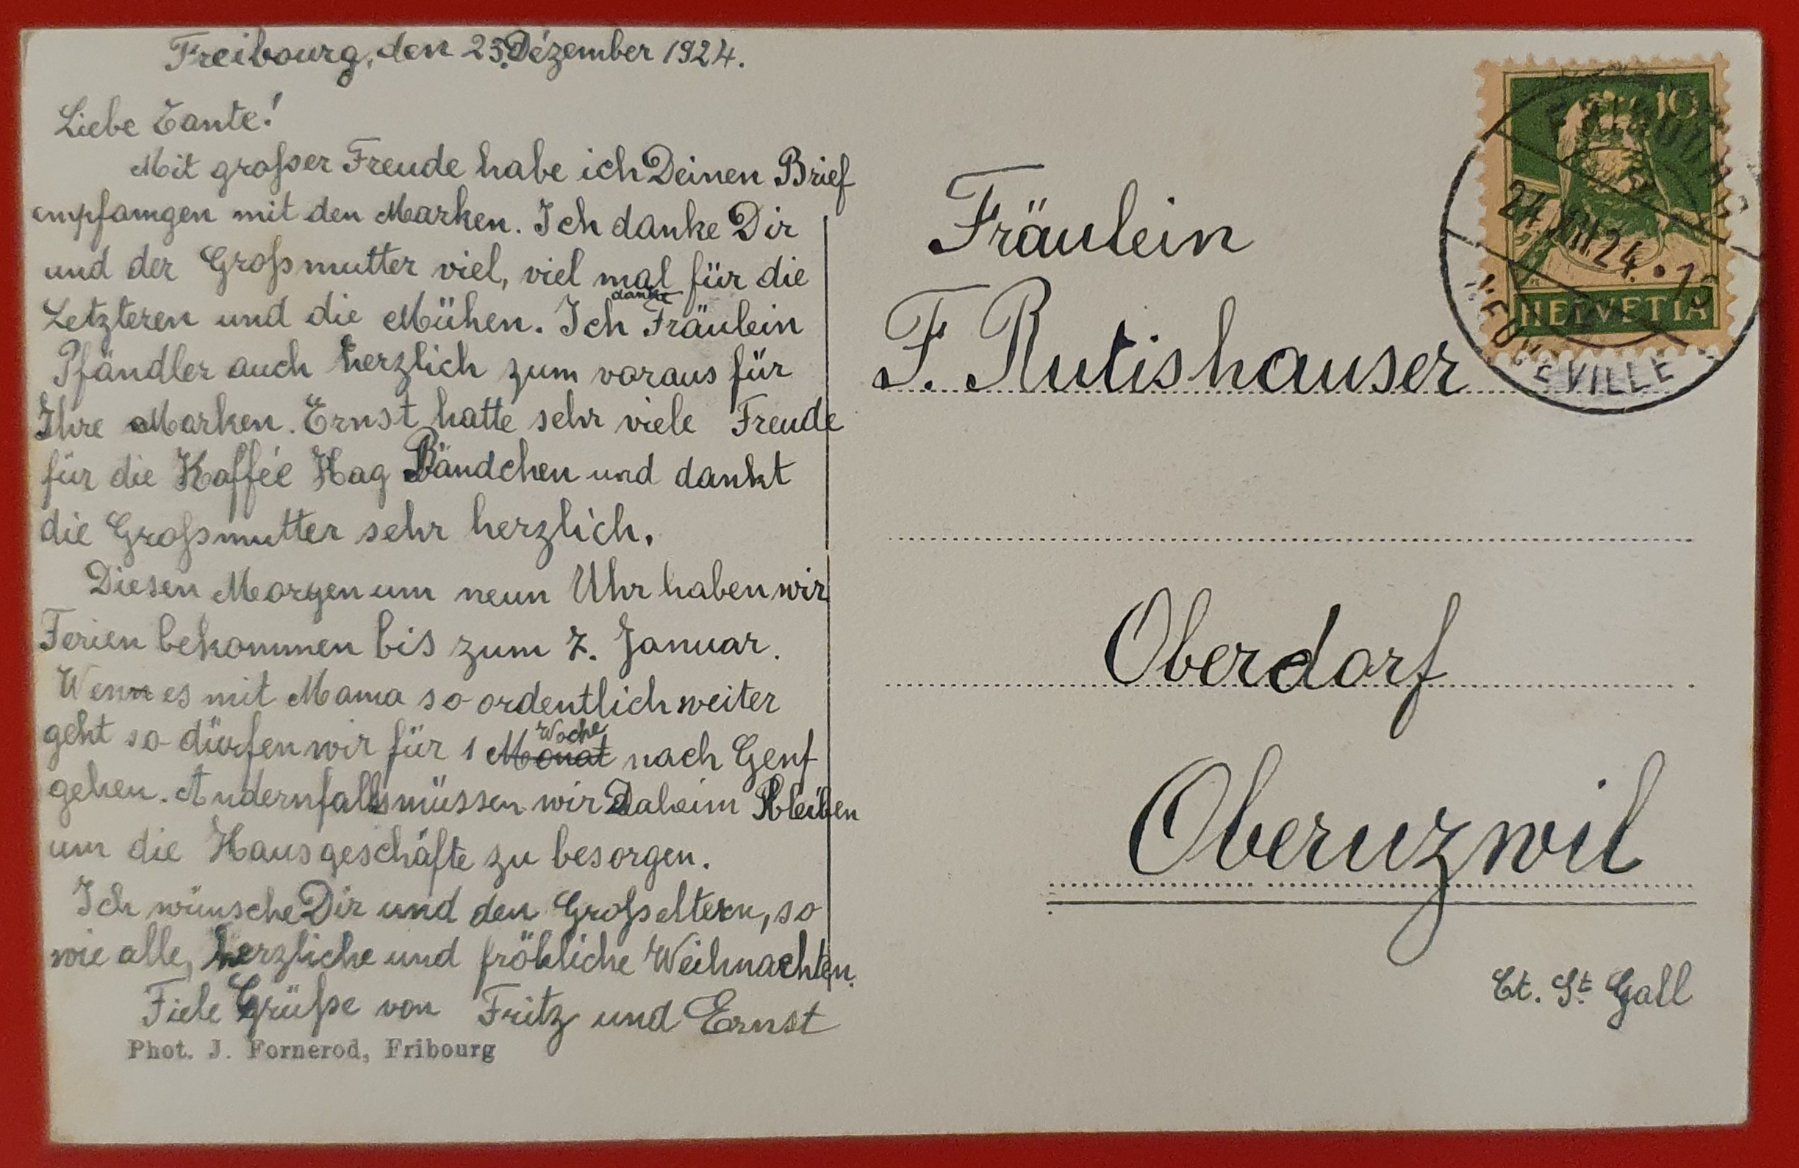 Freibourg, den 23. Dézember 1924.
Liebe Tante!
Mit grosser Freude habe ich Deinen Brief
empfamgen mit den Marken. Ich danke Dir
und der Grossmutter viel, viel mal für die
Letzteren und die Mühen. Ich danke Fräulein
Pfändler auch herzlich zum voraus für
Ihre Marken. Ernst hatte sehr viele Freude
für die Kaffée Hag Bändchen und dankt
die Grossmutter sehr herzlich.
Diesen Morgen um neun Uhr haben wir
Ferien bekommen bis zum 7. Januar.
Wenn es mit Mama so ordentlich weiter
geht so dürfen wir für 1 Monat Woche nach Genf
gehen. Andernfalls müssen wir Daheim bleiben
um die Hausgeschäfte zu besorgen.
Ich wünsche Dir und den Grosseltern, so
wie alle, herzliche und fröhliche Weihnachten.
Fiele Grüsse von Fritz und Ernst
Phot. J. Fornerod, Fribourg
Fräulein
F. Rutishauser
Oberdorf
Oberuzwil
Ct. St. Gall
10
HELVETIA
FRIBOURG
24.XII.24.
NEUVEVILLE